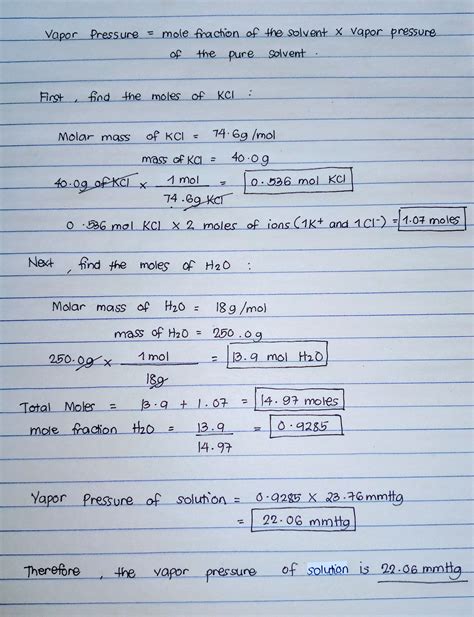 Vapor Pressure = mole fraction of the solvent x vapor pressure
of the pure solvent.
First, find the moles of KCl :
Molar mass of KCl = 74.6g/mol
mass of KCl = 40.0g
40.0g of KCl x 1 mol = 0.536 mol KCl
74.6g KCl
0.536 mol KCl x 2 moles of ions (1K+ and 1Cl-) = 1.07 moles
Next, find the moles of H2O :
Molar mass of H2O = 18g/mol
mass of H2O = 250.0g
250.0g x 1 mol = 13.9 mol H2O
18g
Total Moles = 13.9 + 1.07 = 14.97 moles
mole fraction H2O = 13.9 = 0.9285
14.97
Vapor Pressure of solution = 0.9285 x 23.76mmHg
= 22.06 mmHg
Therefore, the vapor pressure of solution is 22.06 mmHg